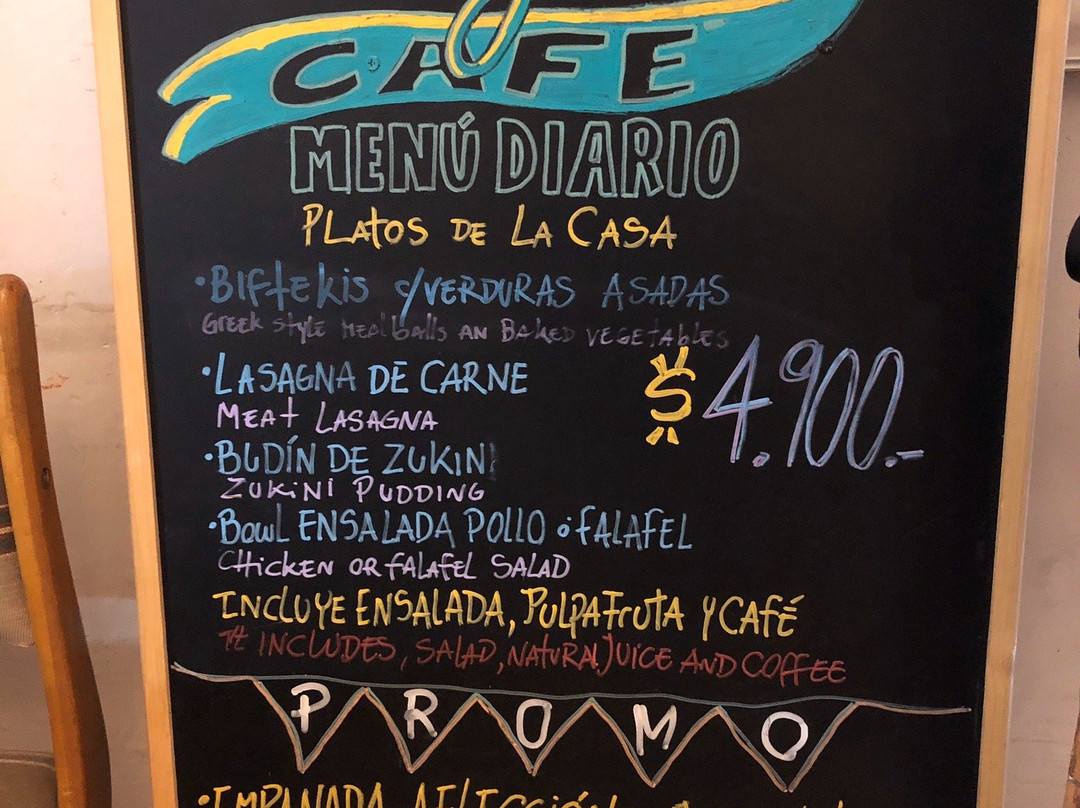 CAFE
MENÚ DIARIO
PLATOS DE LA CASA
•BIFTEKIS C/VERDURAS ASADAS
GREEK STYLE MEATBALLS AN BAKED VEGETABLES
•LASAGNA DE CARNE
MEAT LASAGNA
$ 4.900.-
•BUDÍN DE ZUKINI
ZUKINI PUDDING
•BOWL ENSALADA POLLO o FALAFEL
CHICKEN OR FALAFEL SALAD
INCLUYE ENSALADA, PULPA FRUTA Y CAFÉ
It INCLUDES, SALAD, NATURAL JUICE AND COFFEE
PROMO
•EMPANADA A ELECCIÓN